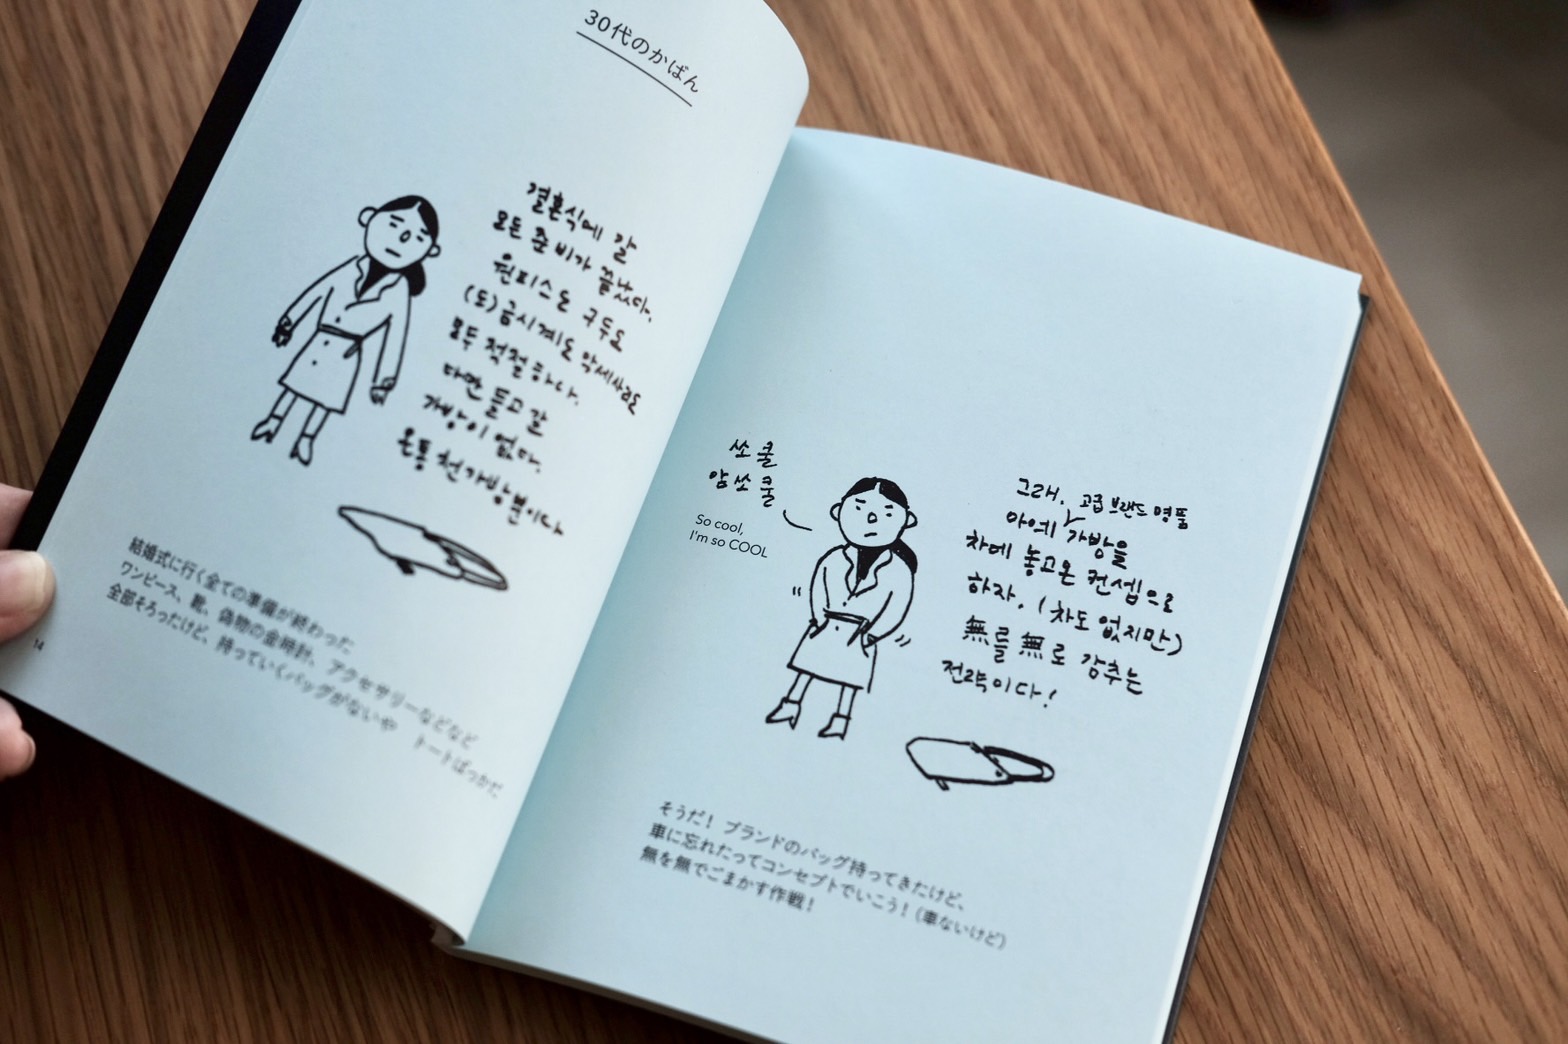 30代のかばん
결혼식에 갈
모든 준비가 끝났다.
원피스도 구두도
(도)금시계도 악세사리도
모두 적절하다.
다만 들고 갈
가방이 없다.
온통 천가방뿐이다
結婚式に行く全ての準備が終わった
ワンピース、靴、偽物の金時計、アクセサリーなどなど
全部そろったけど、持っていくバッグがないや トートばっかだ
14
쏘 쿨
암 쏘 쿨
So cool,
I'm so COOL
그래, 고급 브랜드 명품
아예 가방을
차에 놓고온 컨셉으로
하자. (차도 없지만)
無를 無로 감추는
전략이다!
そうだ! ブランドのバッグ持ってきたけど、
車に忘れたってコンセプトでいこう!(車ないけど)
無を無でごまかす作戦!